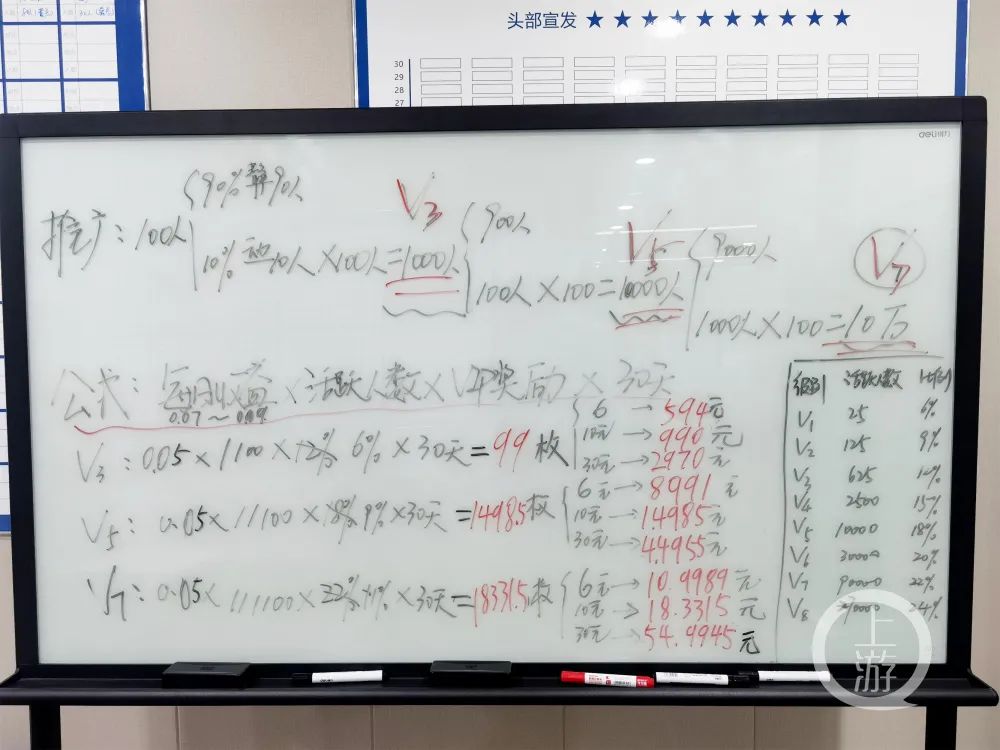 头部宣发 ★ ★ ★ ★ ★ ★ ★ ★ ★ ★
30
29
28
27
deli 得力
90% 90人
推广：100人
10% 动 10人×100人=1000人
V3
900人
100人×100=10000人
V5
9000人
1000人×100=10万
V7
公式：每日收益×活跃人数×V平奖励×30天
0.07～0.09
V3：0.05×1100×12% 6%×30天=99枚
6→594元
10元→990元
30元→2970元
V5：0.05×11100×18% 9%×30天=1498.5枚
6元→8991元
10元→1.4985元
30元→4.4955元
V7：0.05×111100×22% 11%×30天=18331.5枚
6元→10.9989元
10元→18.3315元
30元→54.9945元
级别 活跃人数 比例
V1 25 6%
V2 125 9%
V3 625 12%
V4 2500 15%
V5 10000 18%
V6 30000 20%
V7 90000 22%
V8 270000 24%
上游